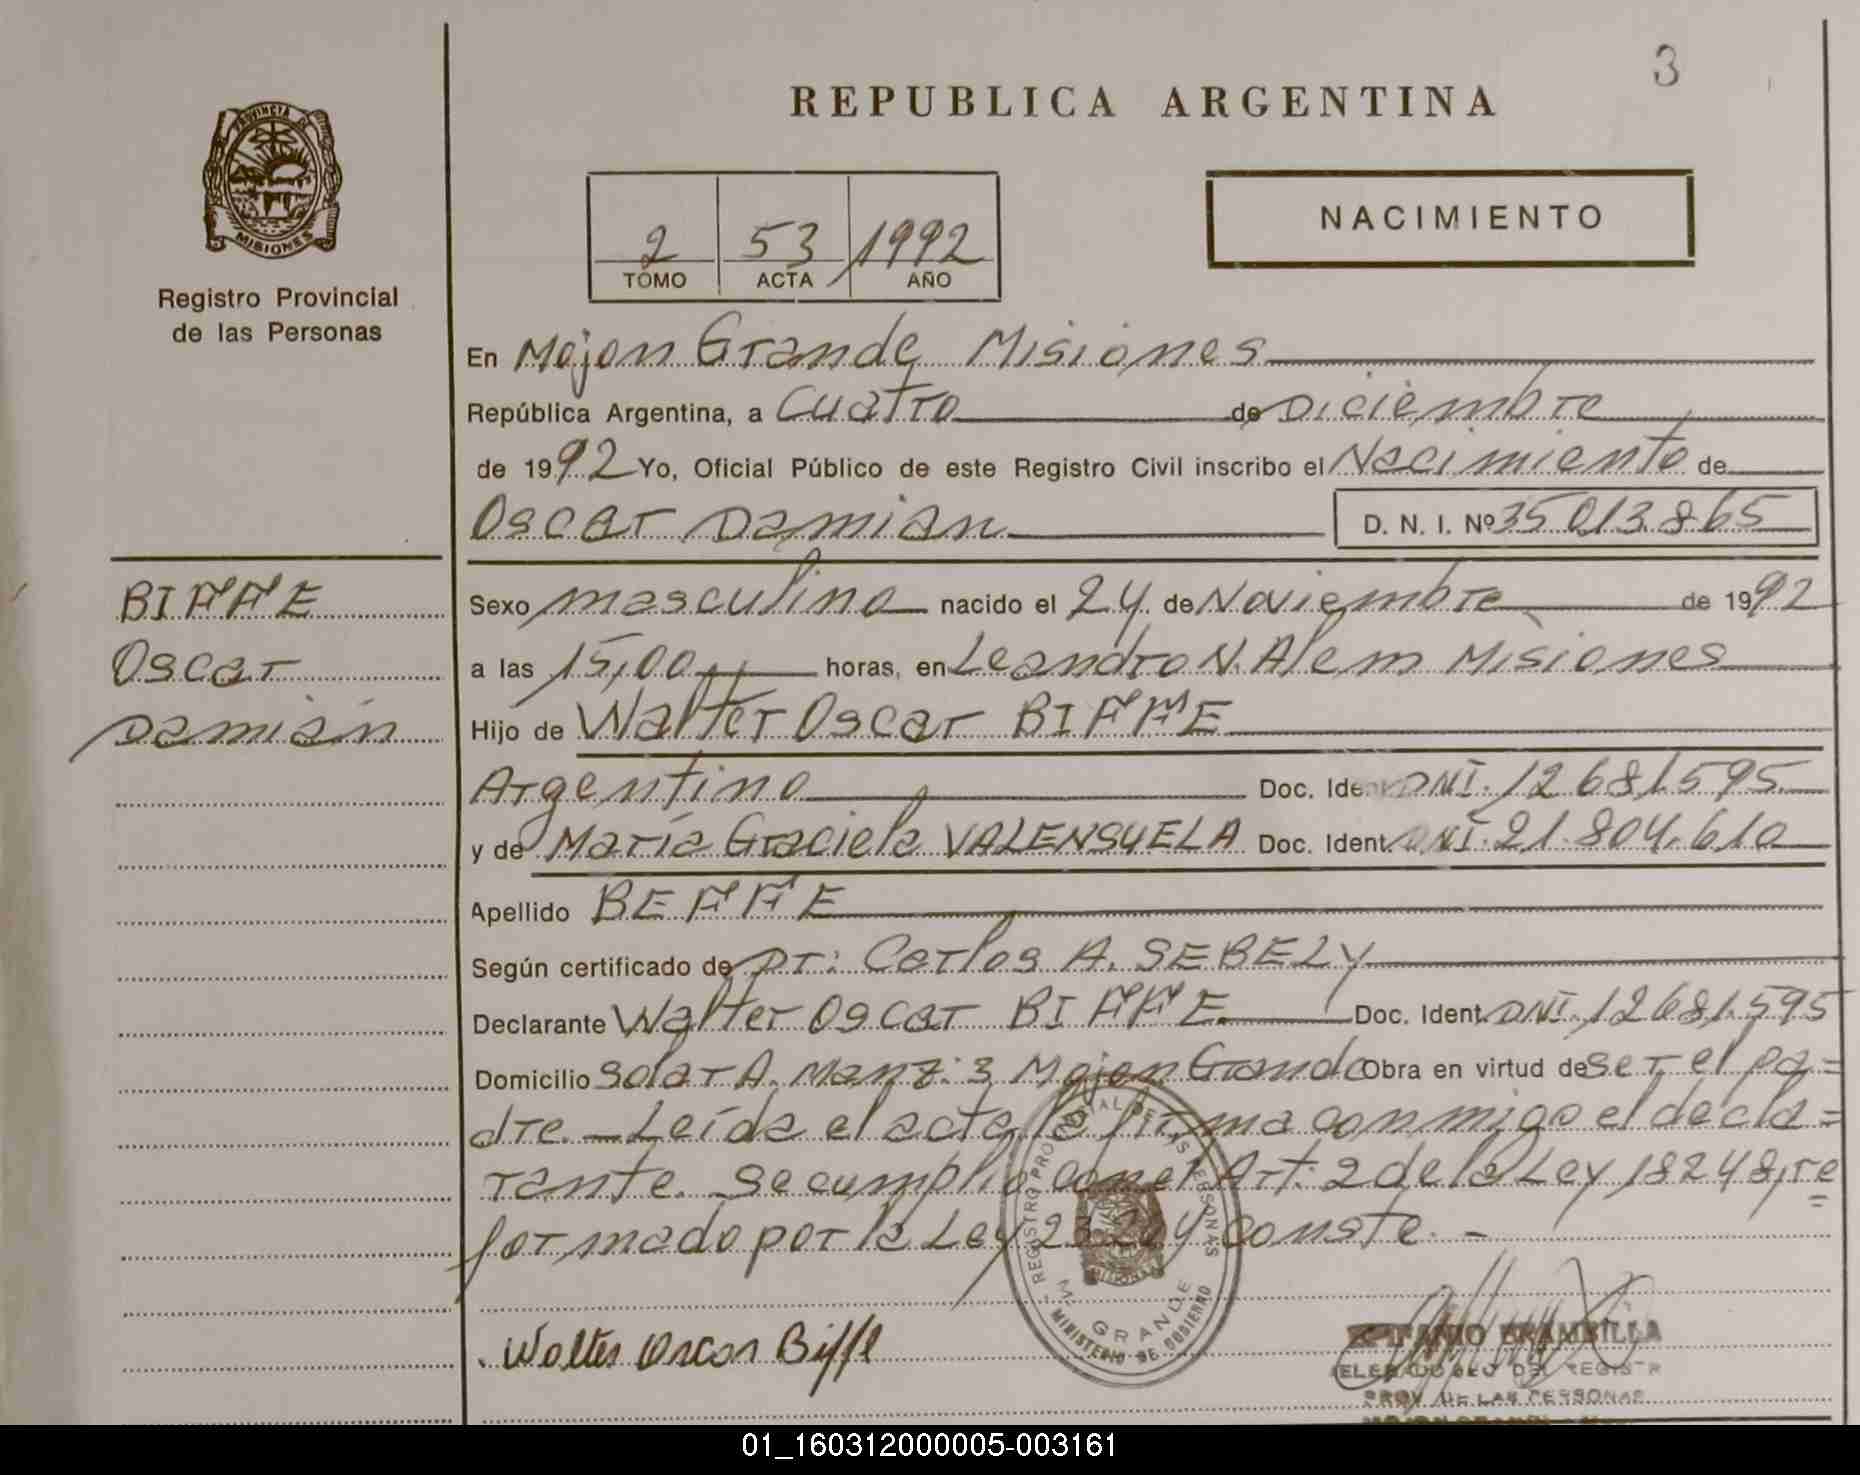 3
REPUBLICA ARGENTINA
PROVINCIA DE
MISIONES
Registro Provincial
de las Personas
2 53 1992
TOMO ACTA AÑO
NACIMIENTO
En Mojon Grande Misiones
República Argentina, a Cuatro de Diciembre
de 1992 Yo, Oficial Público de este Registro Civil inscribo el Nacimiento de
Oscar Damian D. N. I. Nº 35 013 865
BIFFE
Oscar
Damián
Sexo masculino nacido el 24 de Noviembre de 1992
a las 15,00 horas, en Leandro N. Alem Misiones
Hijo de Walter Oscar BIFFE
Argentino Doc. Ident DNI. 12681.595
y de María Graciela VALENSUELA Doc. Ident. DNI. 21.804.610
Apellido BEFFE
Según certificado de Dr: Carlos A. SEBELY
Declarante Walter Oscar BIFFE Doc. Ident. DNI. 12681.595
Domicilio Solar A. Manz: 3 Mojon Grande Obra en virtud de ser el pa=
dre. — Leída el acta la firma conmigo el decla=
rante. Se cumplio con el Art: 2 de la Ley 18248, re=
formado por la Ley 23.264 conste. -
REGISTRO PROVINCIAL DE LAS PERSONAS
M. GRANDE
MINISTERIO DE GOBIERNO
Walter Oscar Biffe
EPIFANIO BRAMBILLA
DEL REGISTR
PROV. DE LAS PERSONAS
01_160312000005-003161